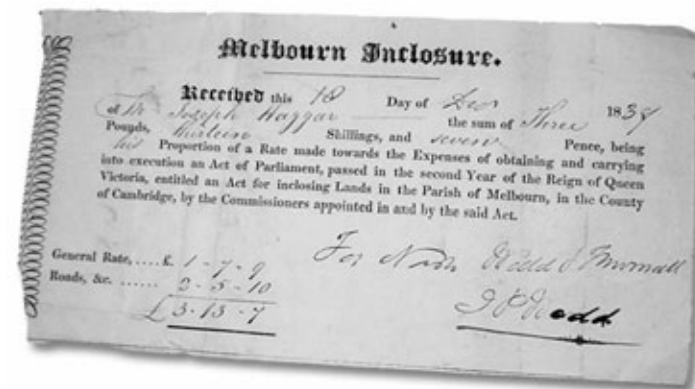 Melbourn Inclosure.
Received this 18 Day of Decr 1839
of Mr Joseph Haggar the sum of Three
Pounds, thirteen Shillings, and seven Pence, being
his Proportion of a Rate made towards the Expenses of obtaining and carrying
into execution an Act of Parliament, passed in the second Year of the Reign of Queen
Victoria, entitled an Act for inclosing Lands in the Parish of Melbourn, in the County
of Cambridge, by the Commissioners appointed in and by the said Act.
General Rate, .... £. 1 - 7 - 9
Roads, &c. ...... 2 - 5 - 10
£3 - 13 - 7
For